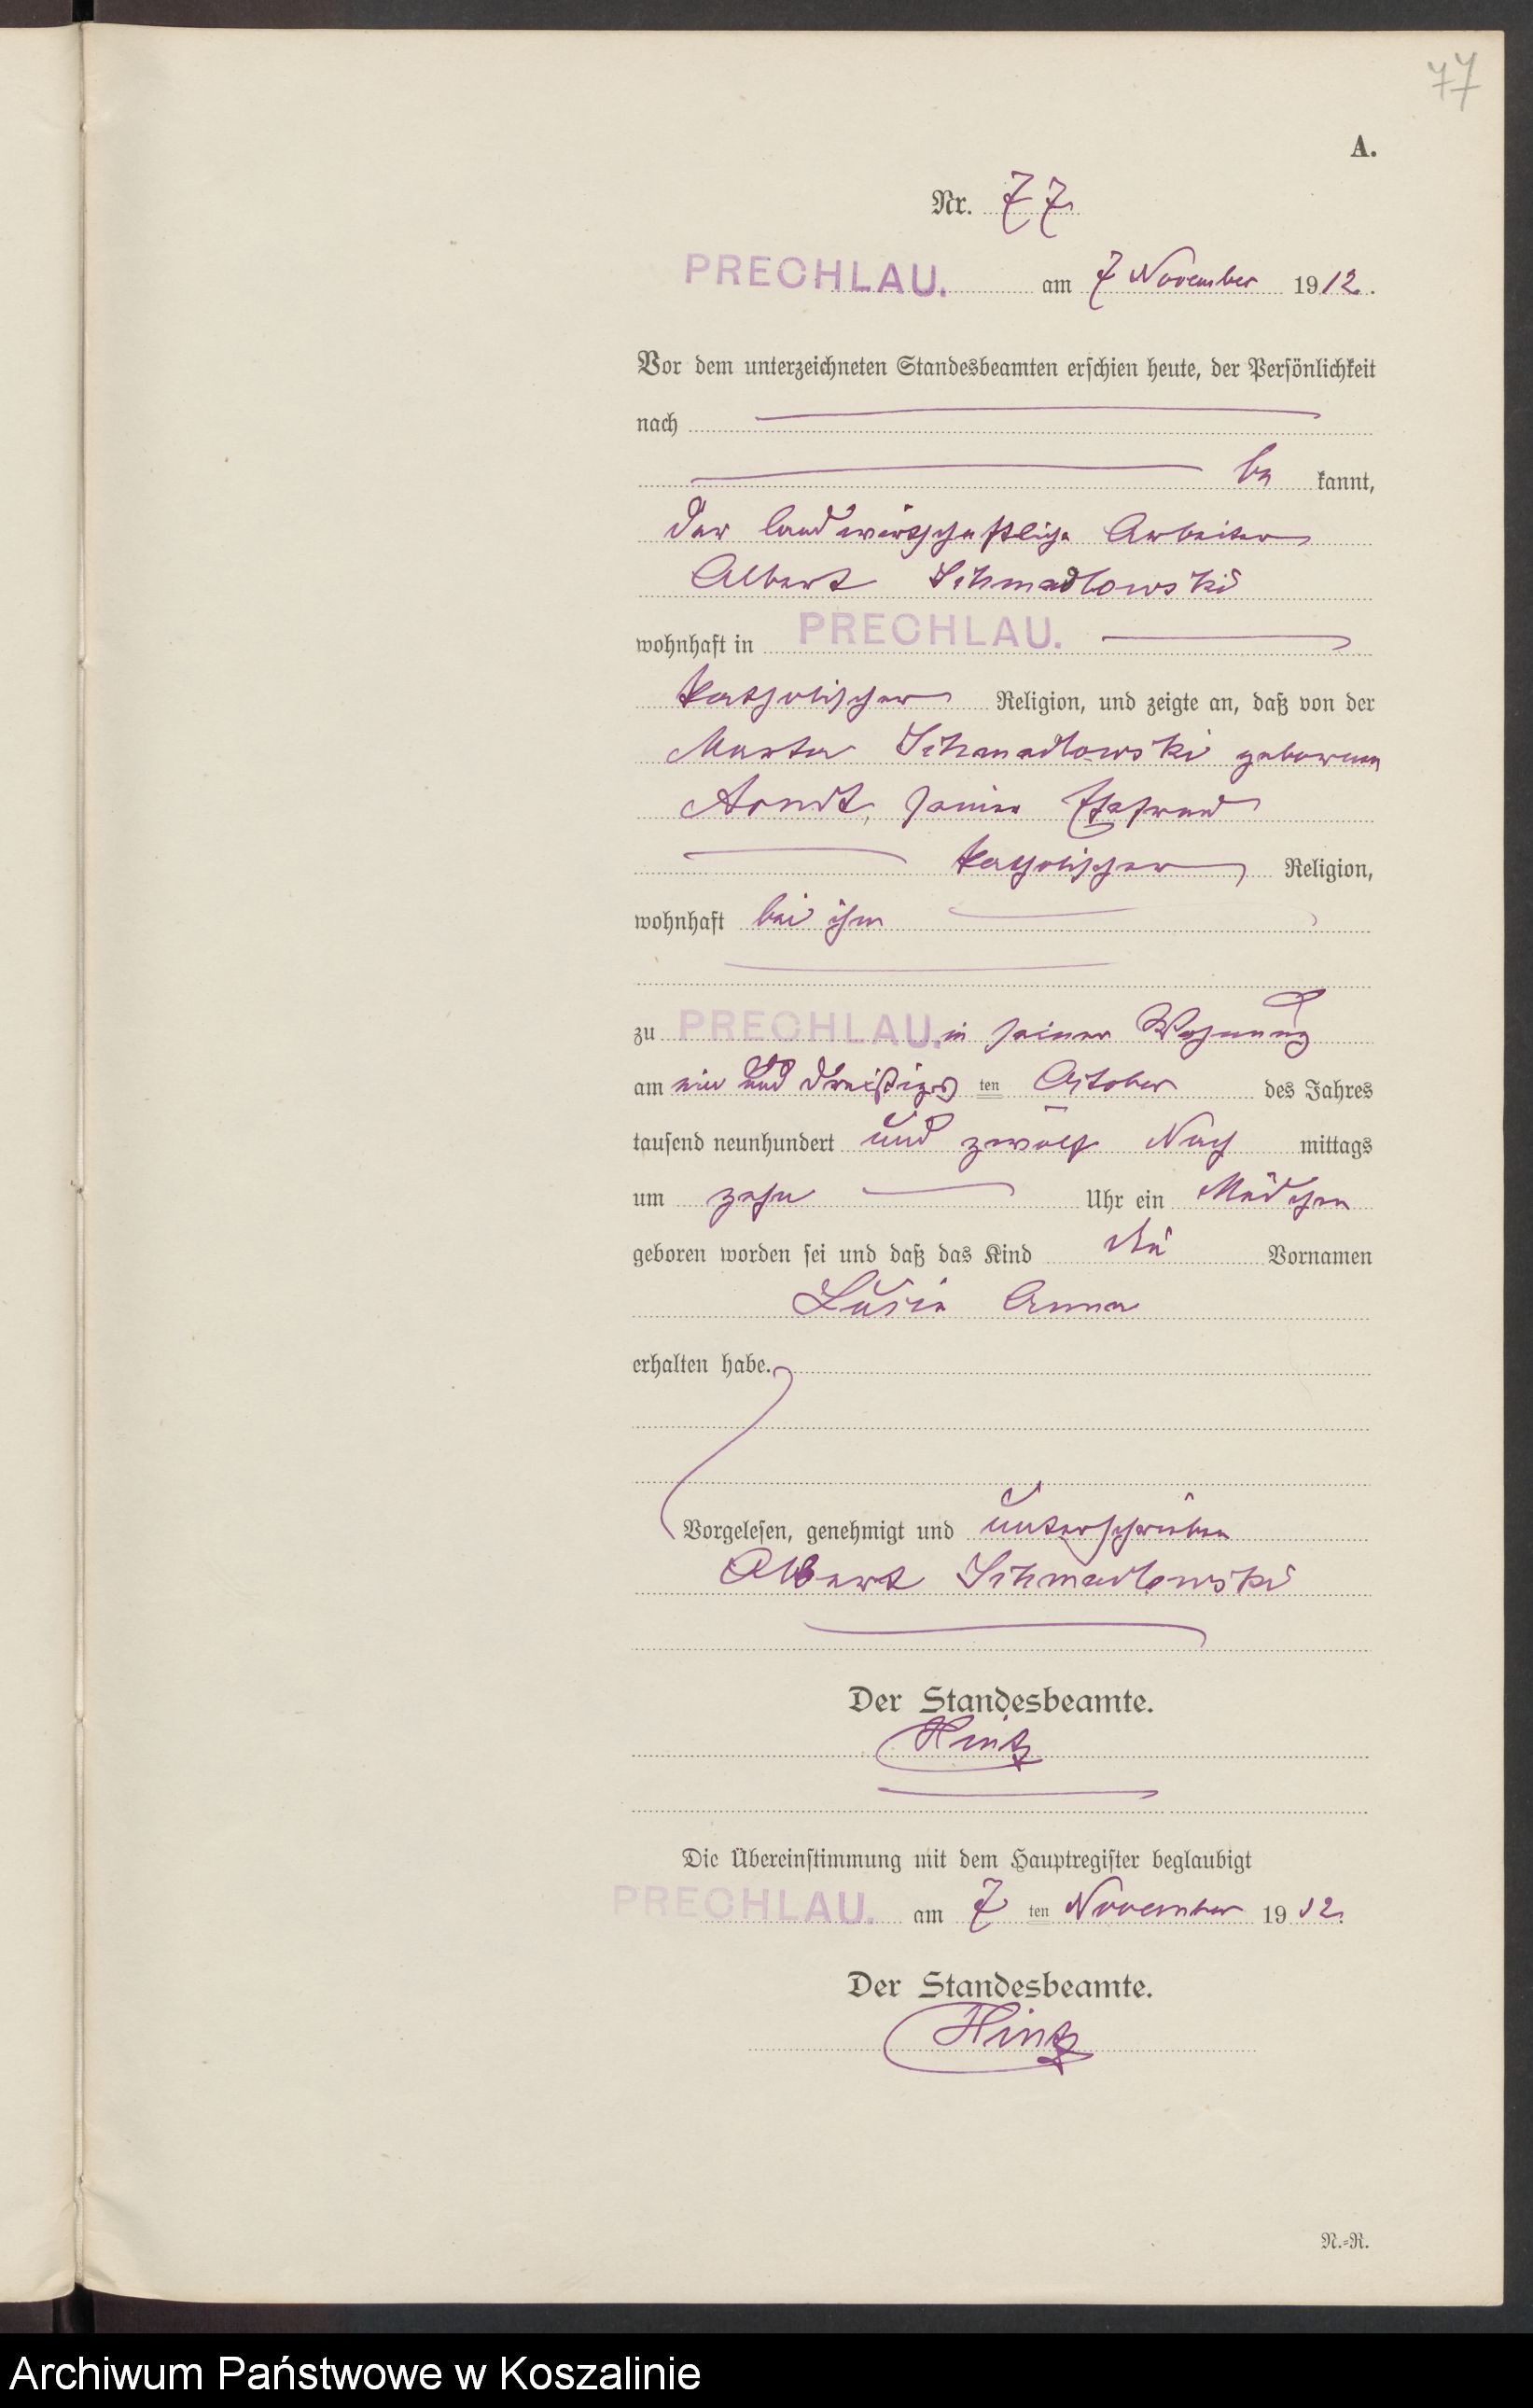 77
A.
Nr. 77
PRECHLAU. am 7 November 1912.
Vor dem unterzeichneten Standesbeamten erschien heute, der Persönlichkeit
nach
be kannt,
der landwirtschaftliche Arbeiter
Albert Schmadlowski
wohnhaft in PRECHLAU.
katholischer Religion, und zeigte an, daß von der
Marta Schmadlowski geborenen
Arndt, seiner Ehefrau
katholischer Religion,
wohnhaft bei ihm
zu PRECHLAU. in seiner Wohnung
am ein und dreißigs ten Oktober des Jahres
tausend neunhundert und zwölf Nach mittags
um zehn Uhr ein Mädchen
geboren worden sei und daß das Kind die Vornamen
Luzia Anna
erhalten habe.
Vorgelesen, genehmigt und unterschrieben
Albert Schmadlowski
Der Standesbeamte.
Hintz
Die Übereinstimmung mit dem Hauptregister beglaubigt
PRECHLAU. am 7 ten November 1912.
Der Standesbeamte.
Hintz
N.-R.
Archiwum Państwowe w Koszalinie